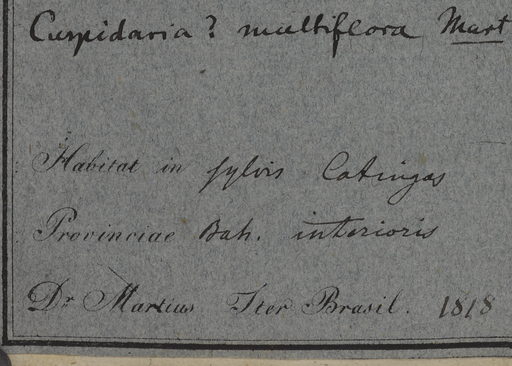 Cuspidaria? multiflora Mart
Habitat in sylvis Catingas
Provinciae Bah. interioris
Dr Martius Iter Brasil. 1818